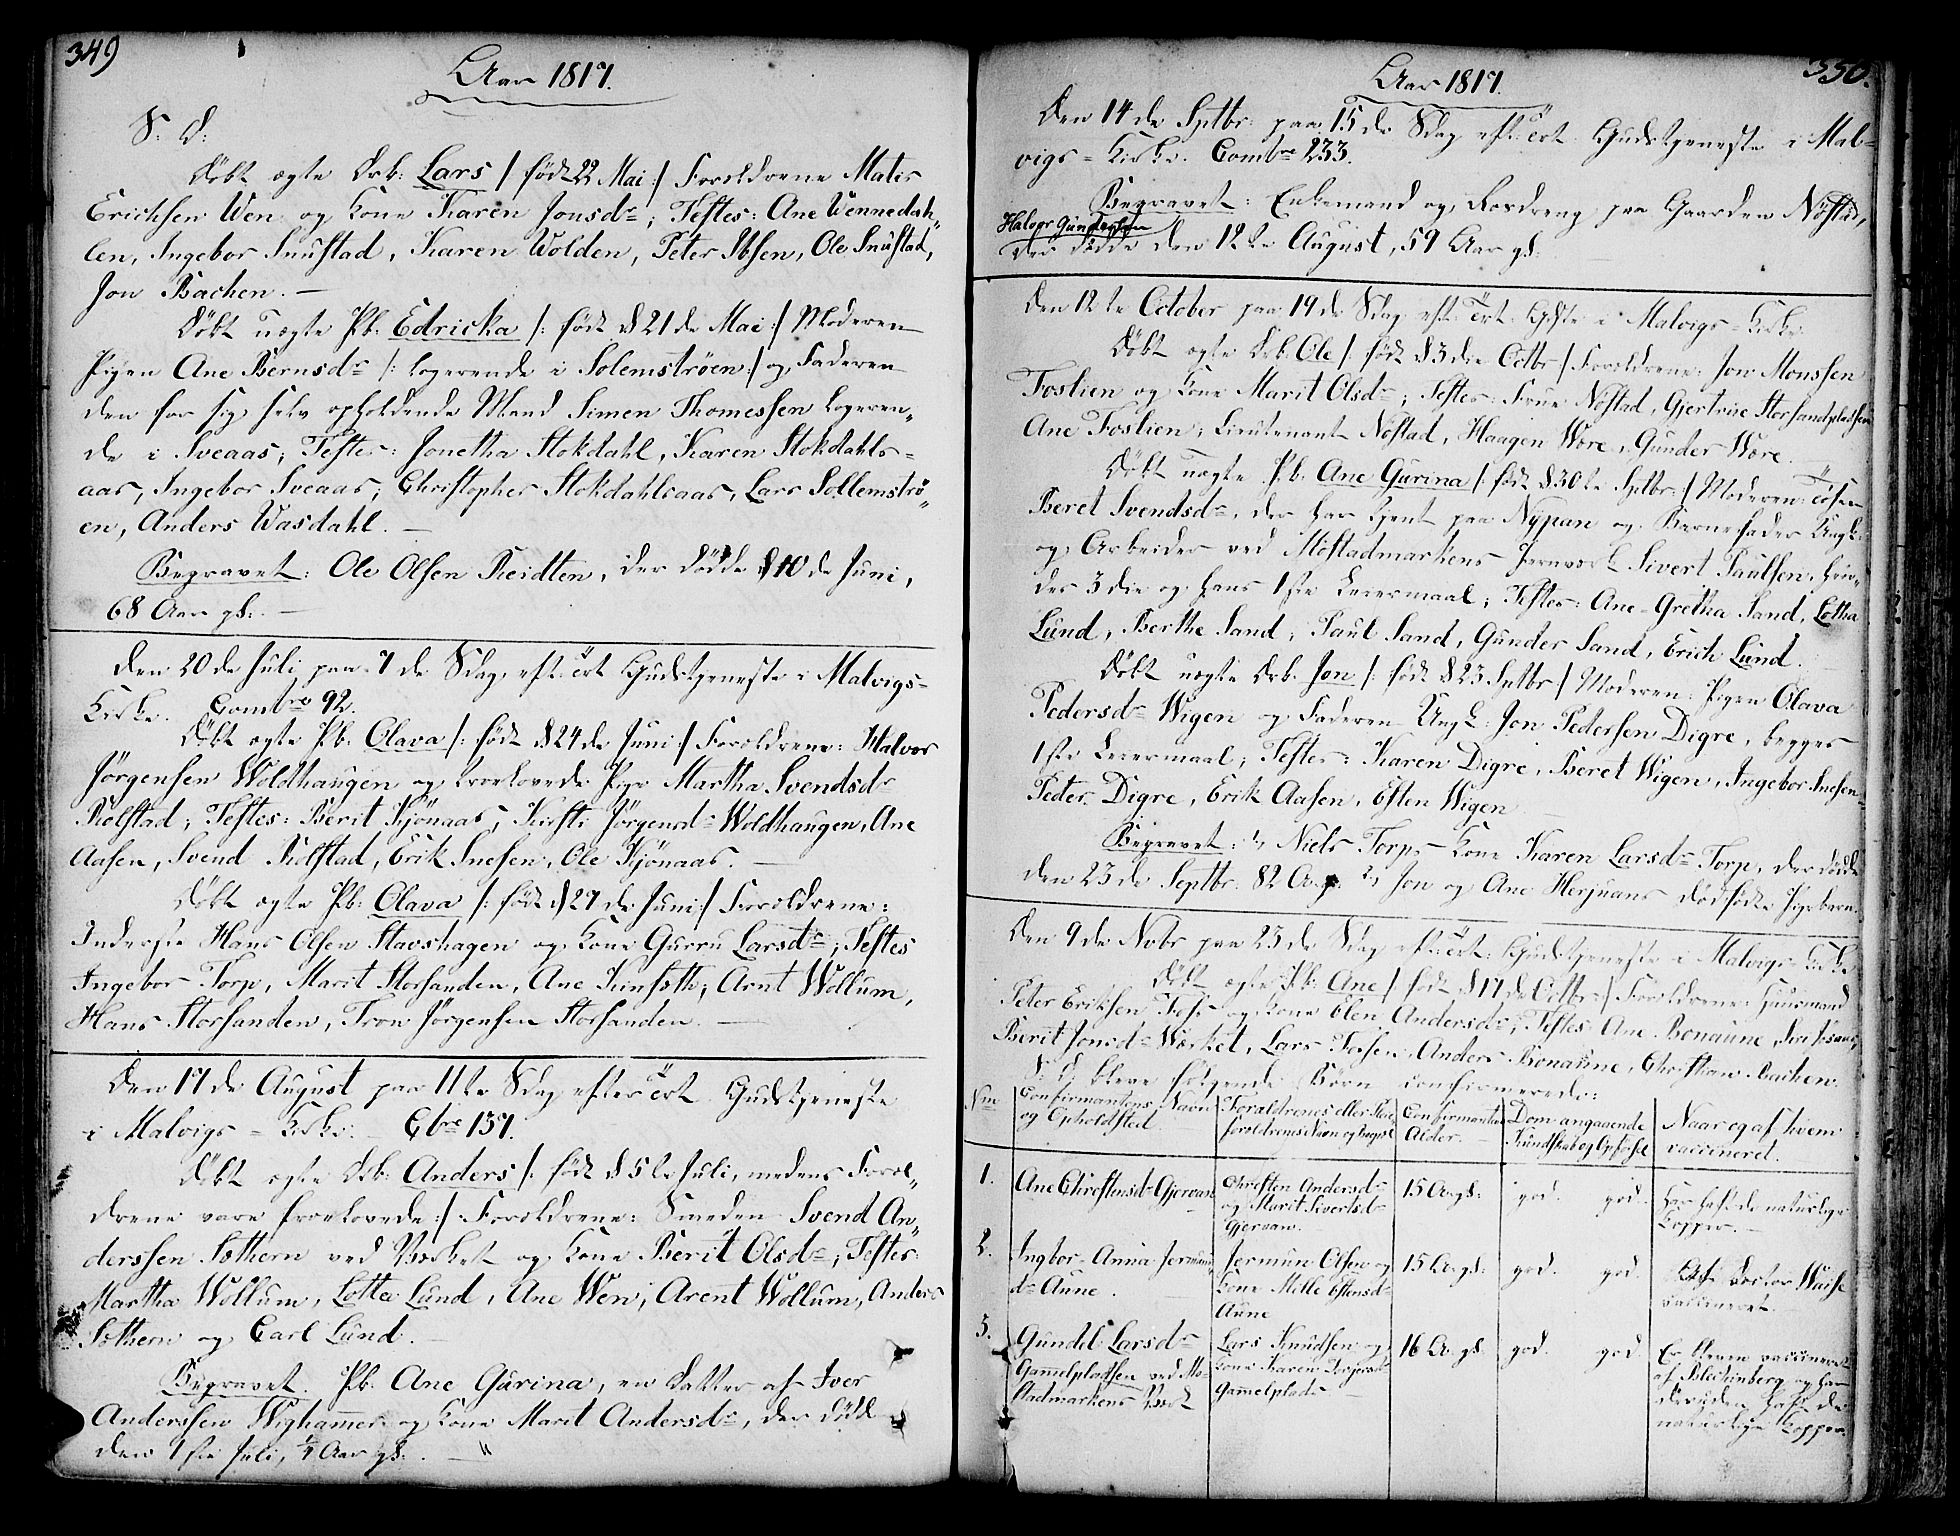 349
Aar 1817.
S: D:
Döbt ægte Drb: Lars /: född 22 Mai :/ Forældrene Matis
Erichsen Wen og Kone Karen Jonsdr; Testes: Ane Wennedah„
len, Ingebor Snustad, Karen Wolden, Peter Ibsen, Ole Snustad,
Jon Bachen. —
Döbt uægte Pb: Edricka /: född d 21de Mai :/ Moderen
Pigen Ane Bernsdr /: logerende i Solemströen :/ og Faderen
den for sig selv opholdende Mand Simen Thomessen logeren„
de i Sveaas; Testes: Jonetha Stokdahl, Karen Stokdahls=
aas, Ingebor Sveaas; Christopher Stokdahlsaas, Lars Sollemströ„
en, Anders Wasdahl. —
Begravet: Ole Olsen Reidten, der döde d 10de Juni,
68 Aar gl: —
Den 20de Juli paa 7de Sdag eft: Trt Gudstjeneste i Malvigs=
Kirke. Combre 92.
Döbt ægte Pb: Olava /: född d 24de Juni :/ Forældrene: Halvor
Jörgensen Woldhaugen og trovlovede Pige Martha Svendsdr
Rolstad; Testes: Berit Kjönaas, Kirsti Jörgensdr Woldhaugen, Ane
Aasen, Svend Rolstad, Erik Snesen, Ole Kjönaas. —
Döbt ægte Pb: Olava /: född d 27de Juni :/ Forældrene:
Inderste Hans Olsen Stavshagen og Kone Gurru Larsdr; Testes
Ingebor Torp, Marit Storsanden, Ane ; Arnt Wollum,
Hans Storsanden, Tron Jörgensen Storsanden. —
Den 17de August paa 11te Sdag efter Trt Gudstjeneste
i Malvigs = Kirke. — Cbre 137.
Döbt ægte Drb: Anders /: född d 5te Juli, medens Foræl„
drene vare trovlovede :/ Forældrene: Smeden Svend An„
derssen Sæthern ved Værket og Kone Berit Olsdr; Testes:
Martha Wollum, Lotta Lund, Ane Wen; Arent Wollum, Anders
Sæthern og Carl Lund. —
Begravet. Pb. Ane Gurina, en Datter af Iver
Anderssen Wighammer og Kone Marit Andersdr, der döde
den 1ste Juli, Aar gl: —
350.
Aar 1817.
Den 14de Sptbr: paa 15de Sdag eft: Trt. Gudstjeneste i Mal=
vigs = Kirke. Combre 233.
Begravet: Enkemand og Rordreng paa Gaarden Nöstad,
Halvor Gundersen
der döde den 12te August, 59 Aar gl:
Den 12te October paa 19de Sdag eft: Trt: Gdste i Malvigs = Kirke.
Döbt ægte Drb. Ole /: född d 3die Octbr :/ Forældrene: Jon Monssen
Foslien og Kone Marit Olsdr; Testes: Frue Nöstad, Gjertrue Storsandpladsen
Ane Foslien; Lieutenant Nöstad, Haagen Wære, Gunder Wære.
Döbt uægte Pb. Ane Gurina /: född d 30te Sptbr: :/ Moderen: Tösen
Beret Svendsdr, der har tjent paa Nypan og Barnefader Ungk:
og Arbeider ved Mostadmarkens Jernværk Sivert Paulsen, hen„
des 3die og hans 1ste Leiermaal; Testes: Ane Gretha Sand, Lotha
Lund, Berthe Sand; Paul Sand, Gunder Sand, Erich Lund.
Döbt uægte Drb. Jon /: född d 23 Sptbr :/ Moderen: Pigen Olava
Pedersdr Wigen og Faderen Ungk: Jon Pedersen Digre, begges
1ste Leiermaal; Testes: Karen Digre, Beret Wigen, Ingebor Snesen=
Peder Digre, Erik Aasen, Esten Wigen
Begravet: 1, Niels Torps Kone Karen Larsdr Torp, der döde
den 23de Septbr: 82 A. g. 2, Jon og Ane Herjuans dödfödte Pigebarn.
Den 9de Nobr paa 23de Sdag eft: Trt: Gudstjeneste i Malvigs = Kirke
Döbt ægte Pb: Ane /: född d 17de Octbr :/ Forældrene: Huusmand
Peter Eriksen Fæs og Kone Elen Andersdr; Testes: Ane Bonaune,
Berit Jonsdr Wærket, Lars Fossen, Anders Bonaune, Christian Bachen.
S: D: bleve fölgende Börn confirmerede:
Nm
Confirmantens Navn
og Opholdsted.
Forældrenes eller Pleie
forældrenes Navn og bopæl
Confirmantens
Alder.
Dom angaaende
Kundskab og Opförsel
Naar og af hvem
vaccineret.
1. Ane Christensdr Gjervan
Christen Andersd
og Marit Sivertsdr
Gjervan.
15 A. gl: god. god. Har haft de naturlige
Kopper. —
2. Ingbor-Anna Jermun
dr Aune.
Jermun Olsen og
Kone Mille Estensdr
Aune
15 A. gl: god. god. Af Doctor Weise
vaccineret.
3. Gundel Larsdr
Gammelpladsen ved Mo=
stadmarkens Værk
Lars Knudsen og
Kone Karen
Gammelplads
16 A. gl. god. god. Er bleven vaccineret
af Blechinberg og har
desuden haft de
naturlige Kopper.